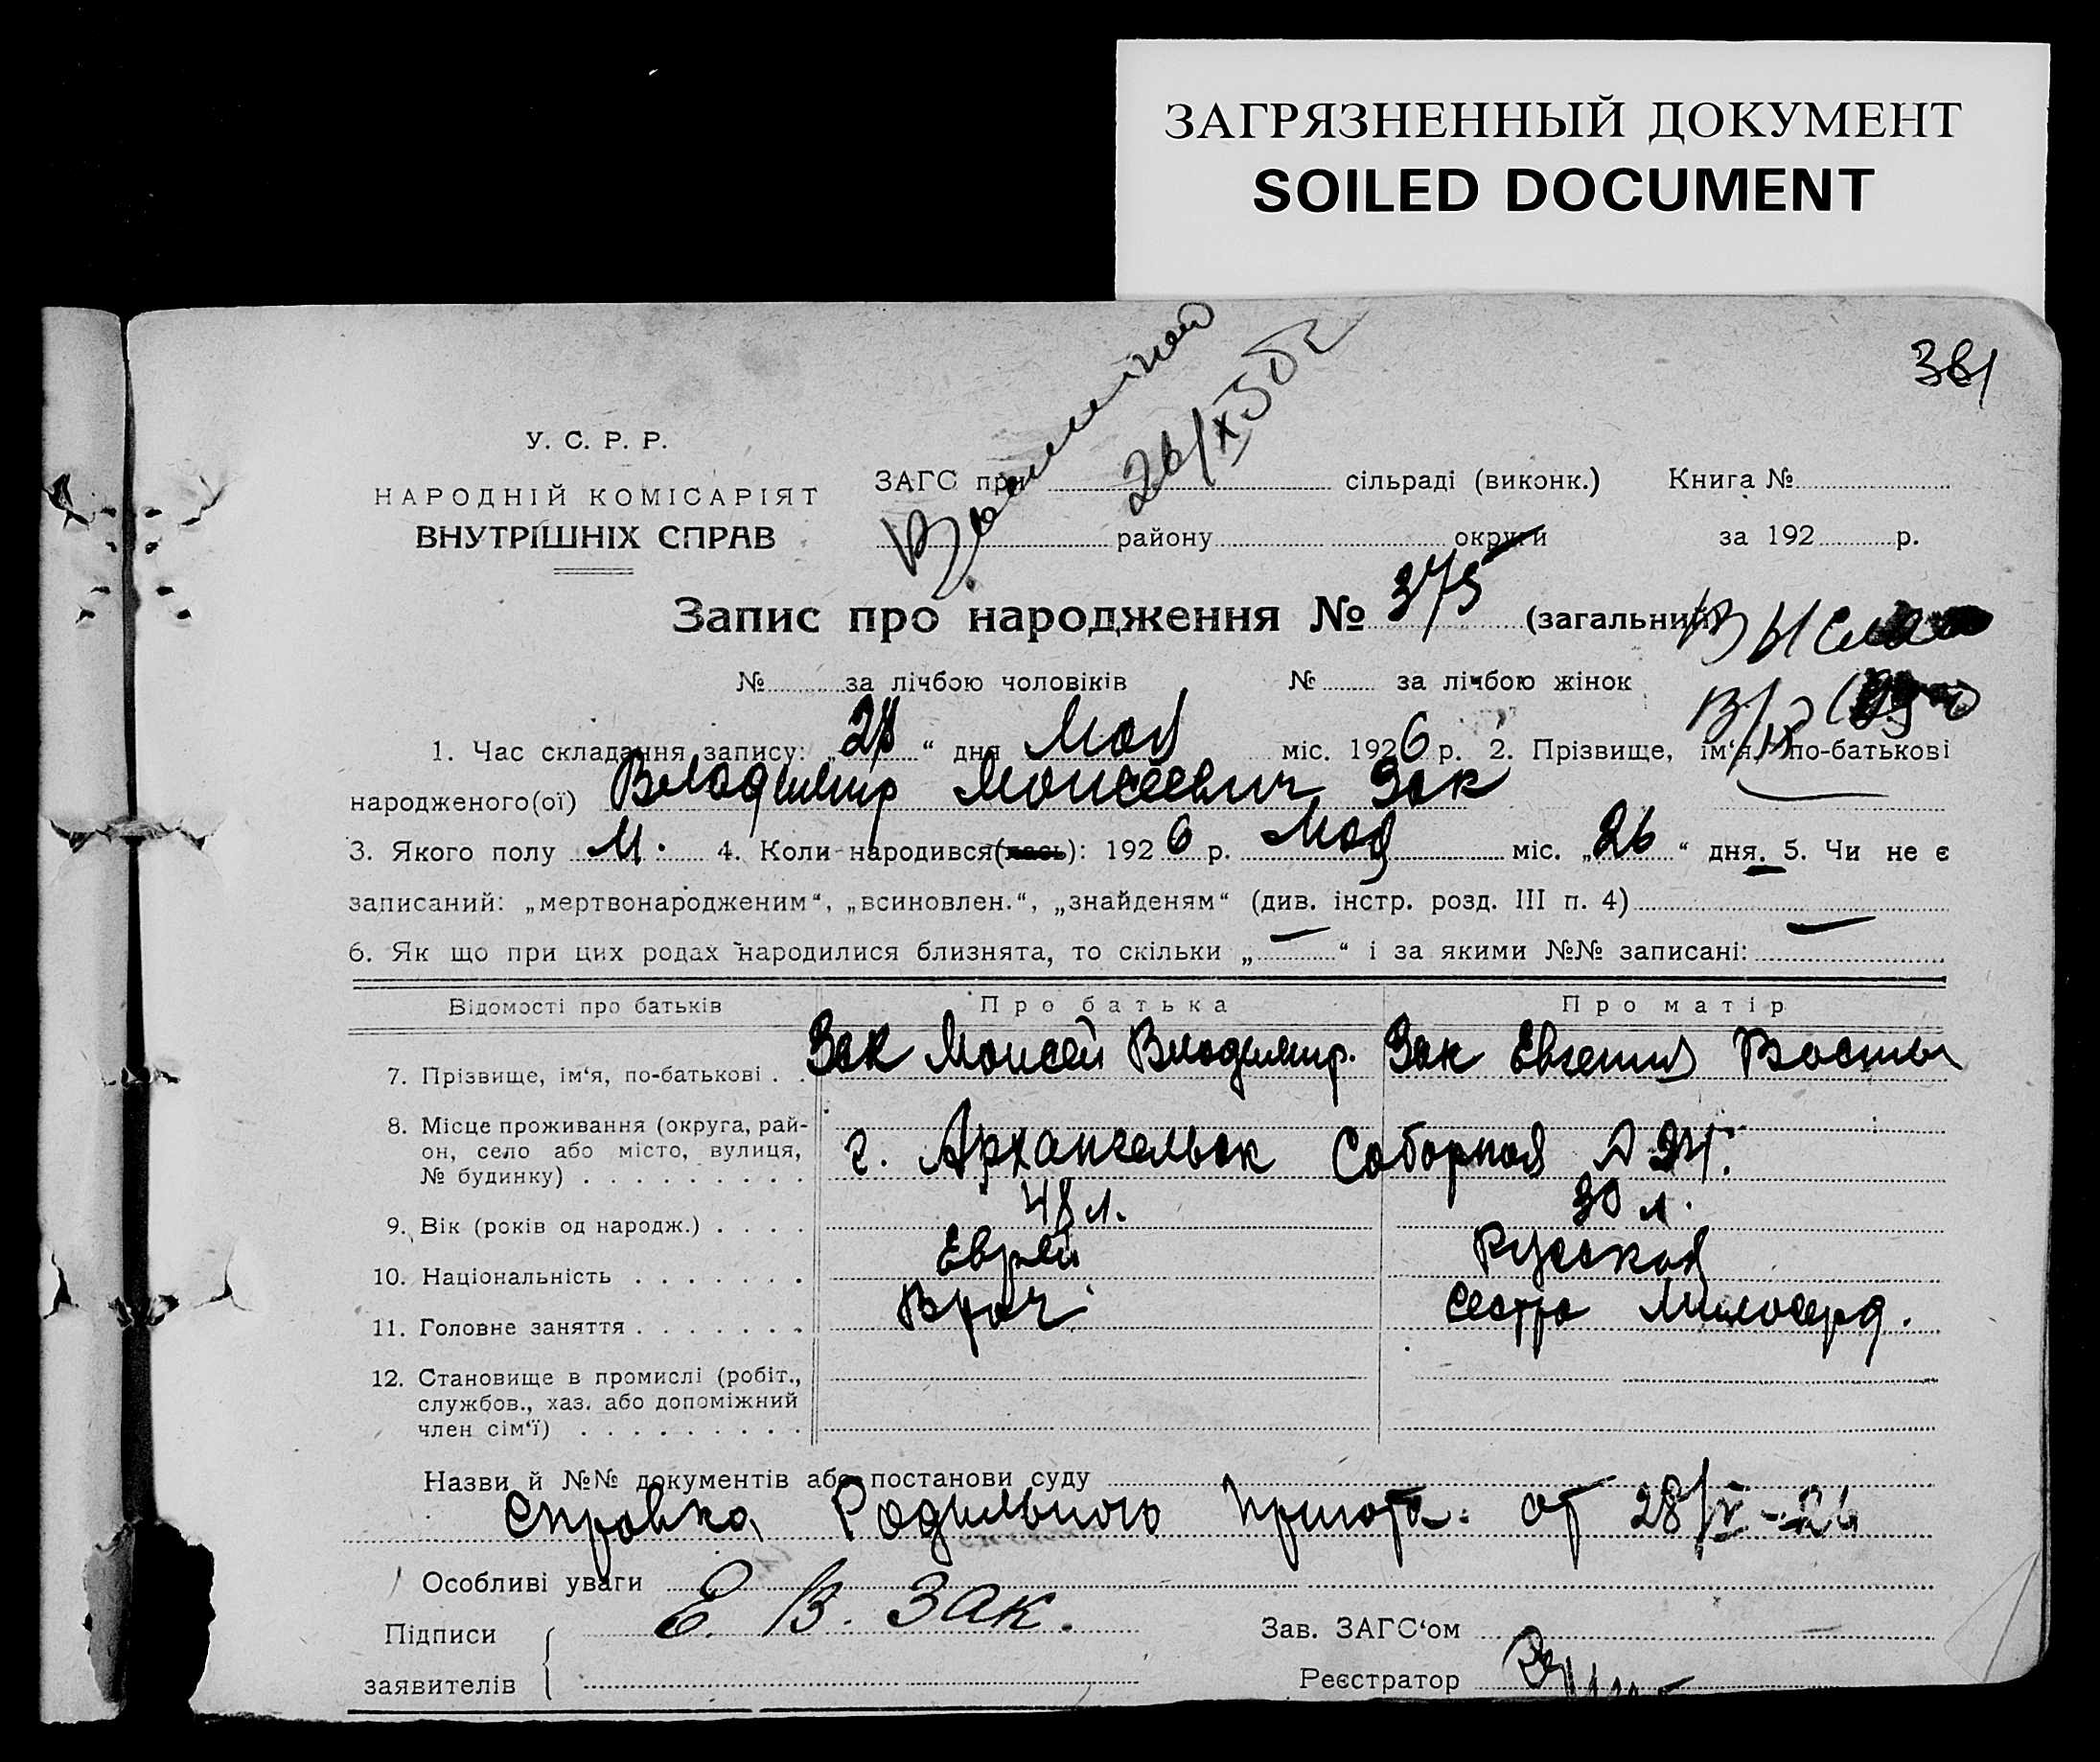 ЗАГРЯЗНЕННЫЙ ДОКУМЕНТ
SOILED DOCUMENT
381
26/XI 50 г
У. С. Р. Р.
НАРОДНІЙ КОМІСАРІЯТ
ВНУТРІШНІХ СПРАВ
ЗАГС при сільраді (виконк.) Книга №
району округи за 192 р.
Запис про народження № 375 (загальний)
№ за лічбою чоловіків № за лічбою жінок
1. Час складання запису: „28“ дня Мая міс. 1926 р. 2. Прізвище, ім‘я, по-батькові
народженого(ої) Владимир Моисеевич Зак
3. Якого полу М. 4. Коли народився(лась): 1926 р. Мая міс. „26“ дня. 5. Чи не є
записаний: „мертвонародженим“, „всиновлен.“, „знайденям“ (див. інстр. розд. III п. 4) —
6. Як що при цих родах народилися близнята, то скільки „—“ і за якими №№ записані:
Відомості про батьків Про батька Про матір
7. Прізвище, ім‘я, по-батькові . . Зак Моисей Владимир. Зак Евгения Васильи
8. Місце проживання (округа, рай-
он, село або місто, вулиця,
№ будинку) . . . . . . . . . г. Архангельск Соборная
9. Вік (років од народж.) . . . . 48 л. 30 л.
10. Національність . . . . . . . Еврей Русская
11. Головне заняття . . . . . . . Врач Сестра Милосерд.
12. Становище в промислі (робіт.,
службов., хаз. або допоміжний
член сім‘ї) . . . . . . . . .
Назви й №№ документів або постанови суду
Справка Родильного Приюта. от 28/V-26
Особливі уваги
Підписи Е. В. Зак. Зав. ЗАГС‘ом
заявителів Реєстратор